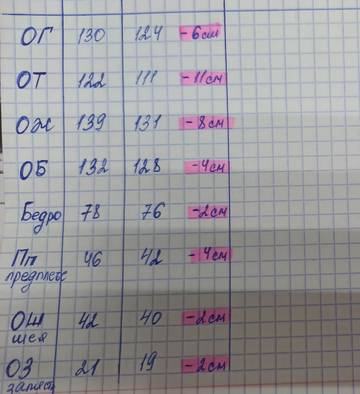 ОГ 130 124 -6см
ОТ 122 111 -11см
ОЖ 139 131 -8см
ОБ 132 128 -4см
Бедро 78 76 -2см
Пп 46 42 -4см
предплечье
ОШ 42 40 -2см
шея
ОЗ 21 19 -2см
запяст